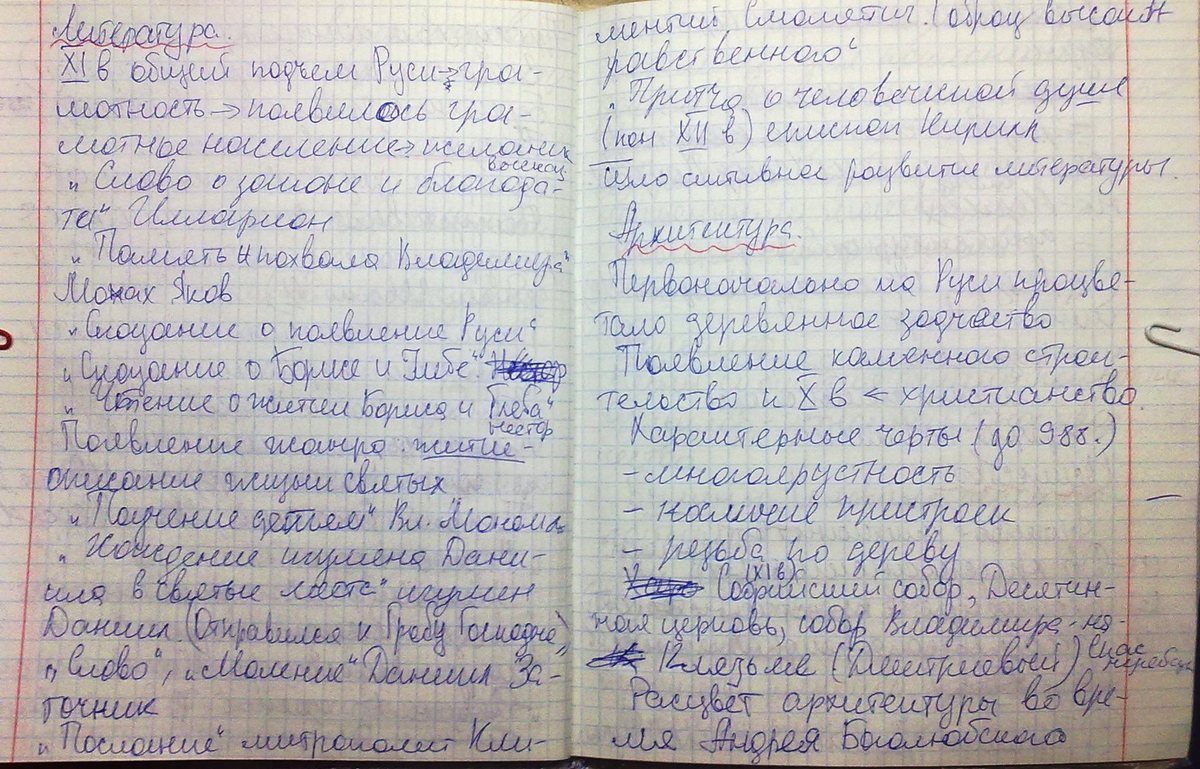 Литература.
XI в общий подъем Руси → гра-
мотность → появилось гра-
мотное население →
"Слово о законе и благода-
ти" Илларион
"Память и похвала Владимира"
Монах Яков
"Сказание о появление Руси"
"Сказание о Борисе и Глебе"
"Чтение о житии Бориса и Глеба"
Нестор
Появление жанра: житие -
описание жизни святых
"Поучение детям" Вл. Мономах
"Хождение игумена Дани-
ила в святые места" игумен
Даниил (Отправился к Гробу Господне)
"Слово", "Моление" Даниил За-
точник
"Послание" митрополит Кли-
ментий Смолятич (образ высокон
равственного"
"Притча о человеческой душе
(кон XII в) епископ Кирилл
Шло активное развитие литературы.
Архитектура.
Первоначально на Руси процве-
тало деревянное зодчество
Появление каменного строи-
тельство к X в ← христианство
Характерные черты (до 988г.)
- многоярустность
- наличие пристроек
- резьба по дереву
(XI в)
Софийский собор, Десятин-
ная церковь, собор Владимира-на-
Клязьме (Дмитриевский) Спас
Расцвет архитектуры во вре-
мя Андрея Боголюбского